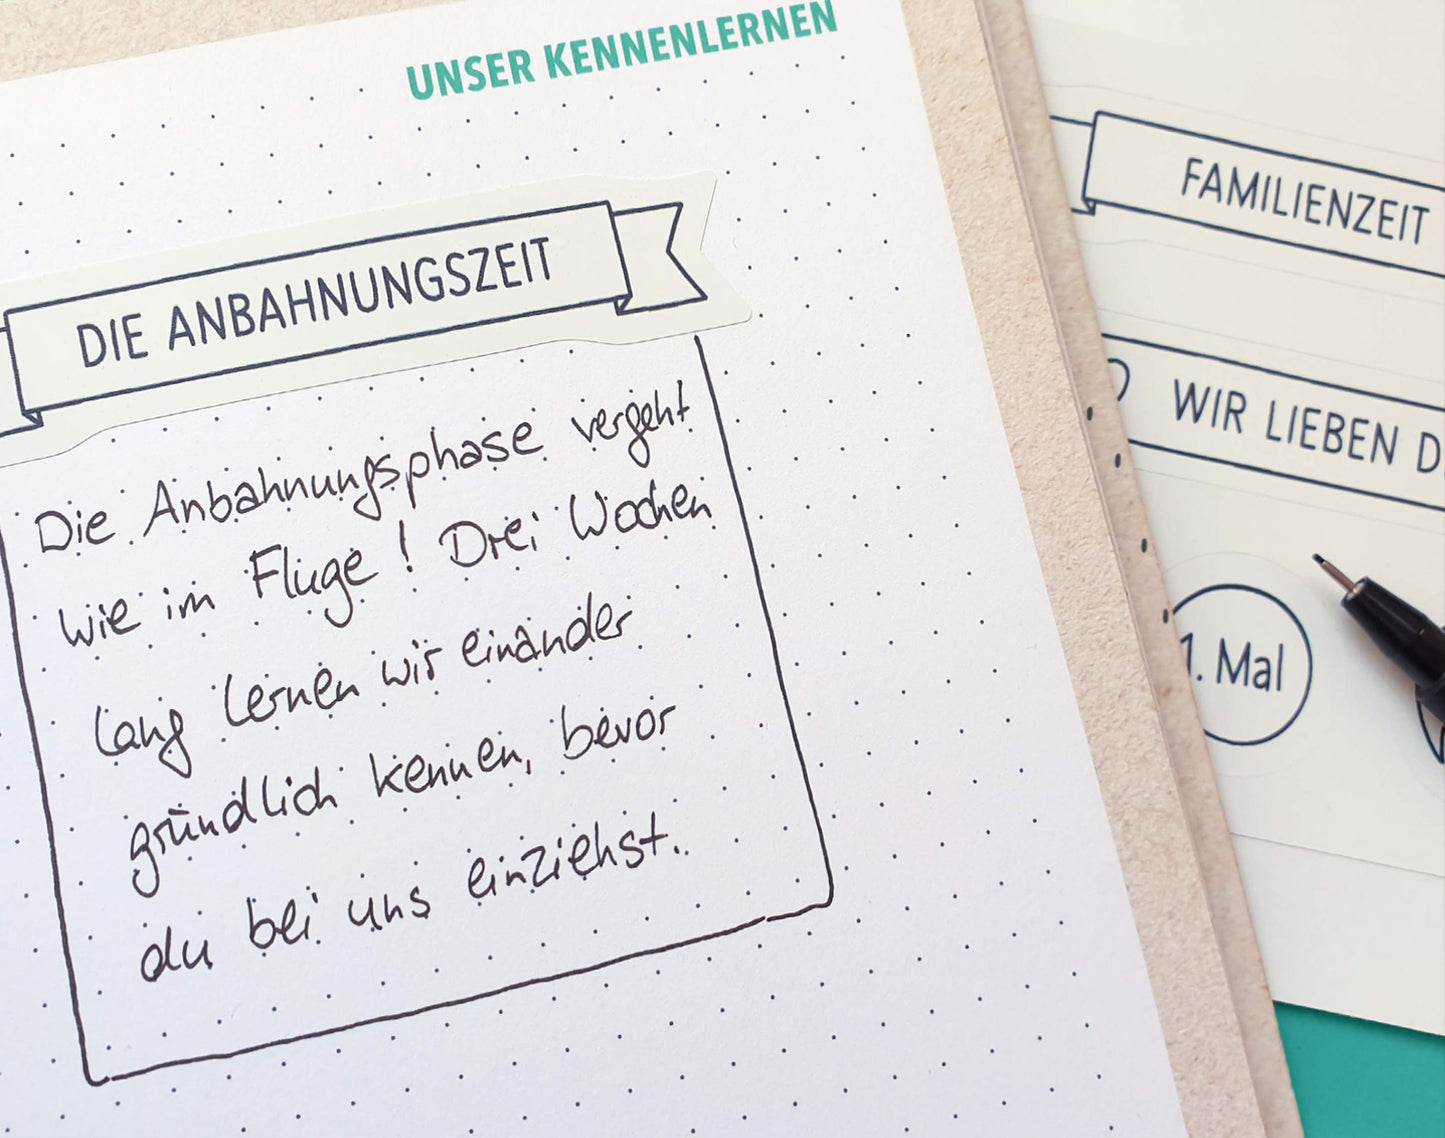 UNSER KENNENLERNEN
DIE ANBAHNUNGSZEIT
Die Anbahnungsphase vergeht
wie im Fluge! Drei Wochen
lang lernen wir einander
gründlich kennen, bevor
du bei uns einziehst.
FAMILIENZEIT
WIR LIEBEN D
1. Mal